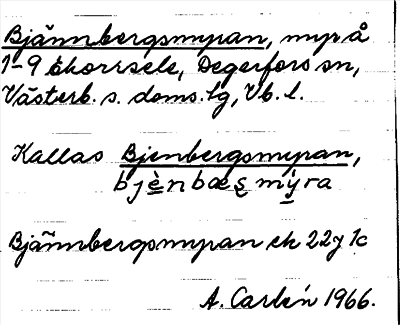 Bjännbergsmyran, myr å
1-9 Ekorrsele, Degerfors sn,
Västerb. s. doms. lg, Vb. l.
Kallas Bjenbergsmyran,
bjènbæȿ mýra
Bjännbergsmyran ek 22J 1c
A. Carlén 1966.